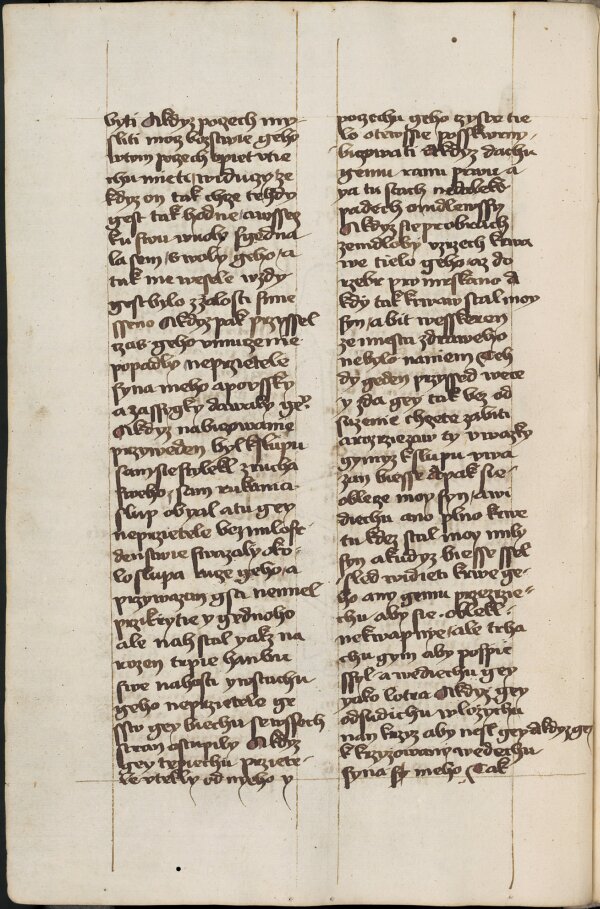 byti A kdyz pozech my-
sliti moz bozstwie geho
wtom pozech opiet vtie
chu mieti widuczy ze
kdyz on tak chze tehdy
gest tak hodne a wssez
ku swu wuoly sgedna
la sem s woly geho a
tak me wesele wzdy
gest bylo z zalosti smie
sseno A kdyz pak przyssel
czas geho vmuczenie
popadly neprzietele
syna meho a porssky
a zassygky dawaly ge°
A kdyz na biczowanie
przyweden byl k slupu
sam sie swlekl z rucha
sweho sam rukama
slup obyal a tu gey
neprzietele bez milost
denstwie swazaly oko-
lo slupa ruce geho a
przywazan gsa nemiel
przikrytie y gednoho
ale nah stal yakz na
rozen trpie hanbu
swe nahosti y wstachu
geho neprzietele ge
ssto gey biechu se wssech
stran ostupily A kdyz
gey tepiechu prziete-
le vtekly od nyeho y
poczechu geho czyste tie
lo otewssie posskwrny-
biczowati A kdyz dachu
gemu ranu prwu a
ya tu stoch nedalek
padech omdlewssy
A kdyz sie probiczich
zemdloby vzrzech krwa
we tielo geho az do
rzebr prymrskano A
kdy tak krwaw stal moy
syn a bit wesskeren
ze miesta zdraweho
nebylo na niem Teh
dy geden przyssed wece
y zda gey tak bez od
suzenie chzete zabiti
a rozrziezaw ty vwazky
gymyz k slupu vwa
zan biesse A pak sie
obleze moy syn a wi
diechu ano plno krwe
tu kdez stal moy mily
syn a kudyz biesse ssel
sled widieti krwe ge-
ho any gemu przezrzie=
chu aby sie oblekl
nekwapnye ale trha
chu gym aby pospie
ssyl a wediechu gey
yako lotra A kdyz gey
odsudichu wlozychu
nan krzyz aby nesl gey A kdyz gey
k krzyzowany wedechu
syna sy meho Tak